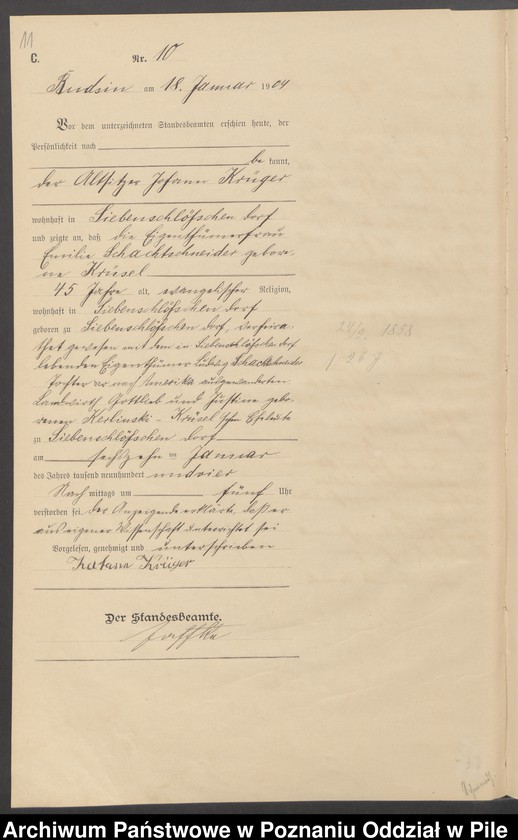 11
C.
Nr. 10
Budsin am 18. Januar 1904
Vor dem unterzeichneten Standesbeamten erschien heute, der
Persönlichkeit nach
be kannt,
der Altsitzer Johann Krüger
wohnhaft in Siebenschlößchen Dorf
und zeigte an, daß die Eigenthümerfrau
Emilie Schachtschneider gebore-
ne Krüsel
45 Jahre alt, evangelischer Religion,
wohnhaft in Siebenschlößchen Dorf
geboren zu Siebenschlößchen Dorf, verheira-
thet gewesen mit dem in Siebenschlößchen Dorf
lebenden Eigenthümer Ludwig Schachtschneider
Tochter der nach Amerika ausgewanderten
Landwirth Gottlieb und Justine gebo-
renen Krüsel'schen Eheleute
zu Siebenschlößchen Dorf
am sechszehn ten Januar
des Jahres tausend neunhundert und vier
Nach mittags um fünf Uhr
verstorben sei. Der Anzeigende erklärte, daß er
aus eigener Wissenschaft unterrichtet sei
Vorgelesen, genehmigt und unterschrieben
Johann Krüger
Der Standesbeamte.
1858
Archiwum Państwowe w Poznaniu Oddział w Pile